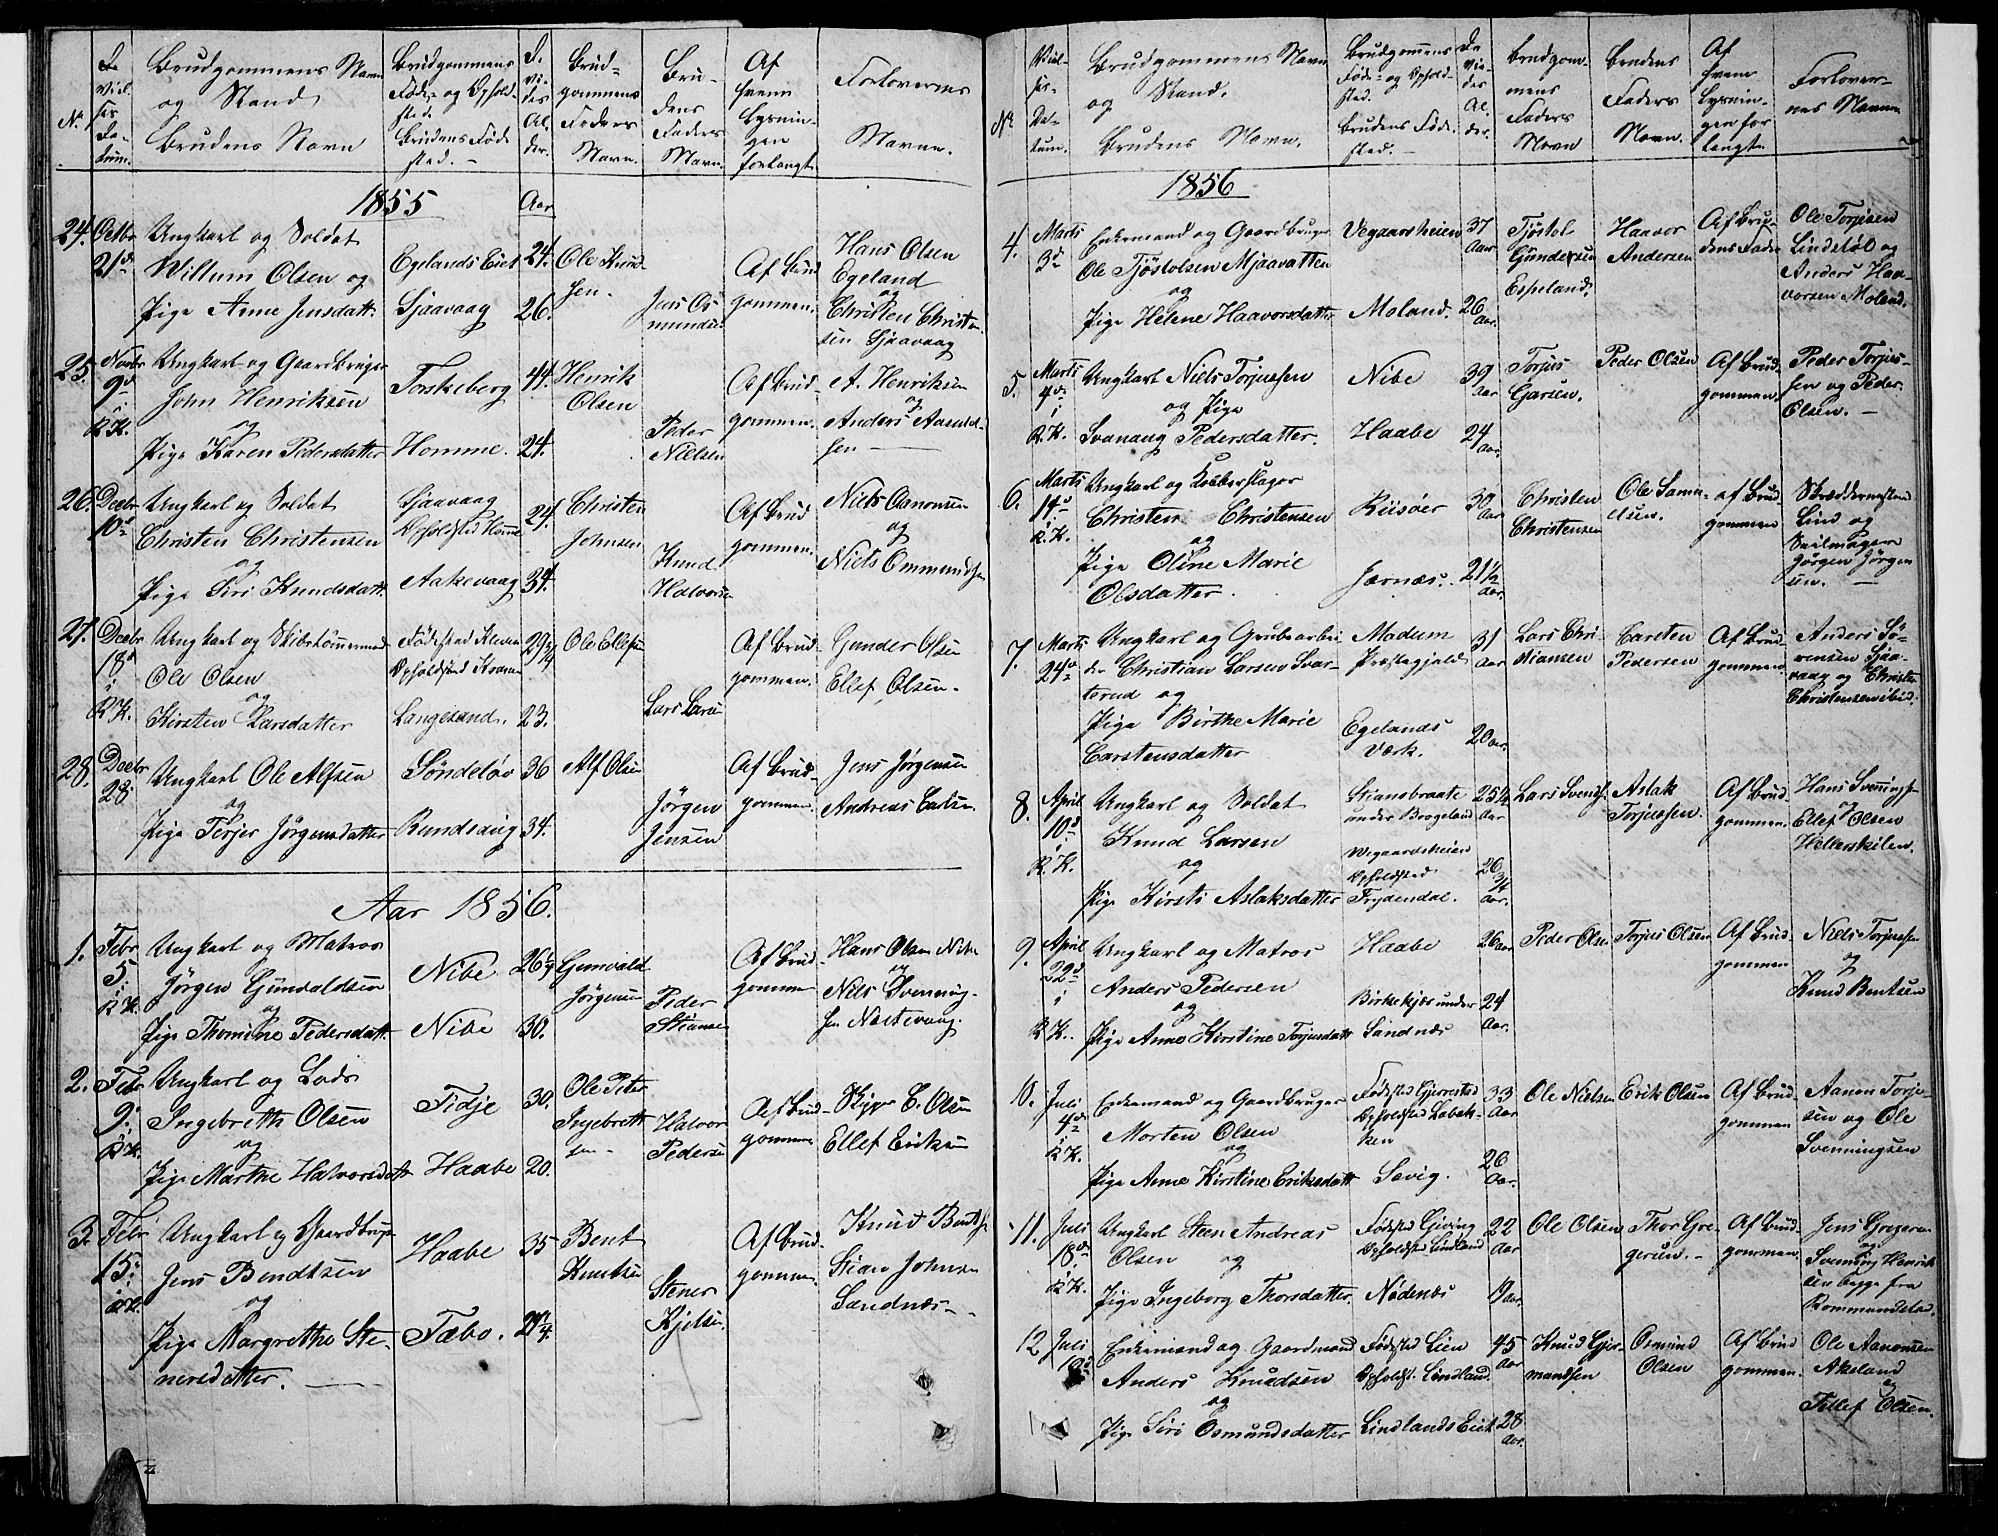 No.
Vielses Datum.
Brudgommens Navn og Stand
Brudens Navn
Brudgommens Føde- og Opholdsted
Brudens Fødested. —
De Viedes Alder.
Brudgommens Faders Navn.
Brudens Faders Navn.
Af hvem Lysningen forlangt.
Forlovernes Navne.
1855
Aar
24. Octbr 21de
Ungkarl og Soldat
Willum Olsen og
Pige Anne Jensdatt.
Egelands Eiet
Sjaavaag
24.
26.
Ole Knudsen.
Jens Osmundsen
Af Brudgommen.
Hans Olsen
Egeland
og
Christen Christensen Sjaavaag
25. Novbr 9d i R.K.
Ungkarl og Gaardbruger
John Henriksen
og
Pige Karen Pedersdatter
Torskeberg
Homme.
44.
24.
Henrik Olsen
Peder Nielsen
Af Brudgommen.
A. Henriksen
og
Anders Aanundsen —
26. Decbr 10d
Ungkarl og Soldat
Christen Christensen
og
Pige Siri Knudsdatt.
Sjaavaag
Opholdsted Homme
Aakevaag
24.
34.
Christen Johnsen
Knud Halvorsen
Af Brudgommen.
Niels Aanonsen
og
Niels Ommundsen
27. Decbr 18d i R.K.
Ungkarl og
Ole Olsen
og
Kirsten Larsdatter
Fødested Kleven
Opholdsted
Langesand.
29 1/4
23.
Ole Ellefsen
Lars Larsen
Af Brudgommen.
Gunder Olsen
Ellef Olsen.
28. Decbr 28.
Ungkarl Ole Alfsen
og
Pige Terjer Jørgensdatter
Søndeløv
Rundsaug
36
34.
Alf Olsen
Jørgen Jensen
Af Brudgommen.
Jens Jørgensen
Andreas
Aar 1856.
1. Febr 5. i R.K.
Ungkarl og Matros
Jørgen Gunvaldsen
og
Pige Thomine Pedersdatt.
Nibe
Nibe
26 1/4
30.
Gunvald Jørgensen
Peder Stiansen
Af Brudgommen
Hans Olsen Nibe
og
Niels Svenningsen
2. Febr 9. i R.K.
Ungkarl og Lods
Ingebreth Olsen
og
Pige Marthe Halvorsdatt
Fidje
Haabe
30.
20.
Ole Peter Ingebrettsen
Halvor Pedersen
Af Brudgommen
Olsen
Ellef Eriksen
3. Febr 15. i R.K.
Ungkarl og Gaardbruger
Jens Bendtsen
og
Pige Margrethe Stenersdatter. —
Haabe
Fæbo.
35
21 1/4.
Bent Knutsen
Stener Kjelsen.
Af Brudgommen.
Knud Bentsen
Stian Johnsen
Sandnæs —
No.
Vielses-Datum.
Brudgommens Navn og Stand.
Brudens Navn.
Brudgommens Føde- og Opholdsted
Brudens Fødested. —
De Viedes Alder.
Brudgommens Faders Navn
Brudens Faders Navn.
Af hvem Lysningen forlangt
Forlovernes Navne
1856
4. Marts 3d
Enkemand og Gaardbruger
Ole Tjøstolsen Mjaavatten
og
Pige Helene Haavorsdatter
Vegaarsheien
Moland.
37 Aar
26 Aar.
Tjøstol Gundersen Espeland.
Haavor Andersen
Af Brudens Fader
Ole Torjusen
Lindstøl og
Anders Haavorsen Moland.
5. Marts 4d i R.K.
Ungkarl Niels Torjussen
og Pige
Svanaug Pedersdatter.
Nibe
Haabe
39 Aar
24 Aar.
Torjus Garsen.
Peder Olsen
Af Brudgommen.
Peder Torjussen og Peder
Olsen. —
6. Marts 14d i R.K.
Ungkarl og Kobberslager
Christen Christensen
og
Pige Oline Marie
Olsdatter.
Riisøer
Jærnæs.
30 Aar
21 1/2 Aar.
Christen Christensen
Ole Samuelsen.
af Brudgommen
Skræddermester
Lind og
Seilmager
Jørgen Jørgensen. —
7. Marts 24d
Ungkarl og Grubearbeider Christian Larsen Svarterud og
Pige Birthe Marie
Carstensdatter
Modum
Præstegjeld
Egelands
Værk.
31 Aar
20 Aar.
Lars Christiansen
Carsten Pedersen
Af Brudgommen
Anders Sørensen Sjaavaag og Christen
Christensen ibid.
8. April 10d i R.K.
Ungkarl og Soldat
Knud Larsen
og
Pige Kirsti Aslaksdatter
Stiansbraate
under Brogeland
Wegaardsheien
Opholdsted
Frydendal.
25 1/4 Aar
26 3/4 Aar.
Lars Svends.
Aslak Torjussen.
Af Brudgommen.
Hans Svenningsen
og
Ellef Olsen
Helleskilen.
9. April 22d i R.K.
Ungkarl og Matros
Anders Pedersen
og
Pige Anne Kirstine Torjusdatt
Haabe
Birkekjær under
Sandnæs
26 Aar
24 Aar.
Peder Olsen
Torjus Olsen
Af Brudgommen
Niels Torjussen
og
Knud Bentsen
10. Juli 4d i R.K.
Enkemand og Gaardbruger
Morten Olsen
og
Pige Anne Kirstine Eriksdatt
Fødested Gjerrestad
Opholdsted
Savig.
33 Aar
26 Aar.
Ole Nielsen
Erik Olsen
Af Brudgommen
Aanen Torjusen og Ole
Svenningsen
11. Juli 18d i R.K.
Ungkarl Steen Andreas
Olsen og
Pige Ingeborg Thorsdatter.
Fødested Giving
Opholdsted Lindland
Nødenæs
22 Aar
19 Aar.
Ole Olsen
Thor Gregersen. —
Af Brudgommen.
Jens Gregersen
og
Svening Henriksen begge fra
Kommandstad.
12 Juli 19d
Enkemand og Gaardmand
Anders Knudsen
og
Pige Siri Osmundsdatter
Fødested Lien
Opholdst. Lindland.
Lindlands Eiet
45 Aar
28 Aar.
Knud Gjermundsen
Osmund Olsen
Af Brudgommen.
Ole Aanonsen
Akeland
og
Tellef Olsen.